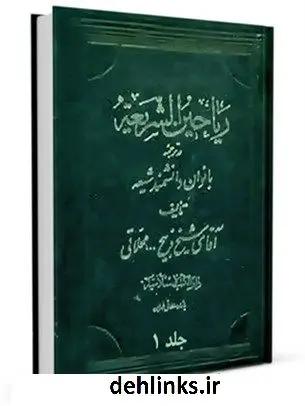 ریاحین الشریعه
در ترجمه
بانوان دانشمند شیعه
تالیف
آقای شیخ ذبیح ... محلاتی
دارالکتب الاسلامیه
جلد ۱
dehlinks.ir